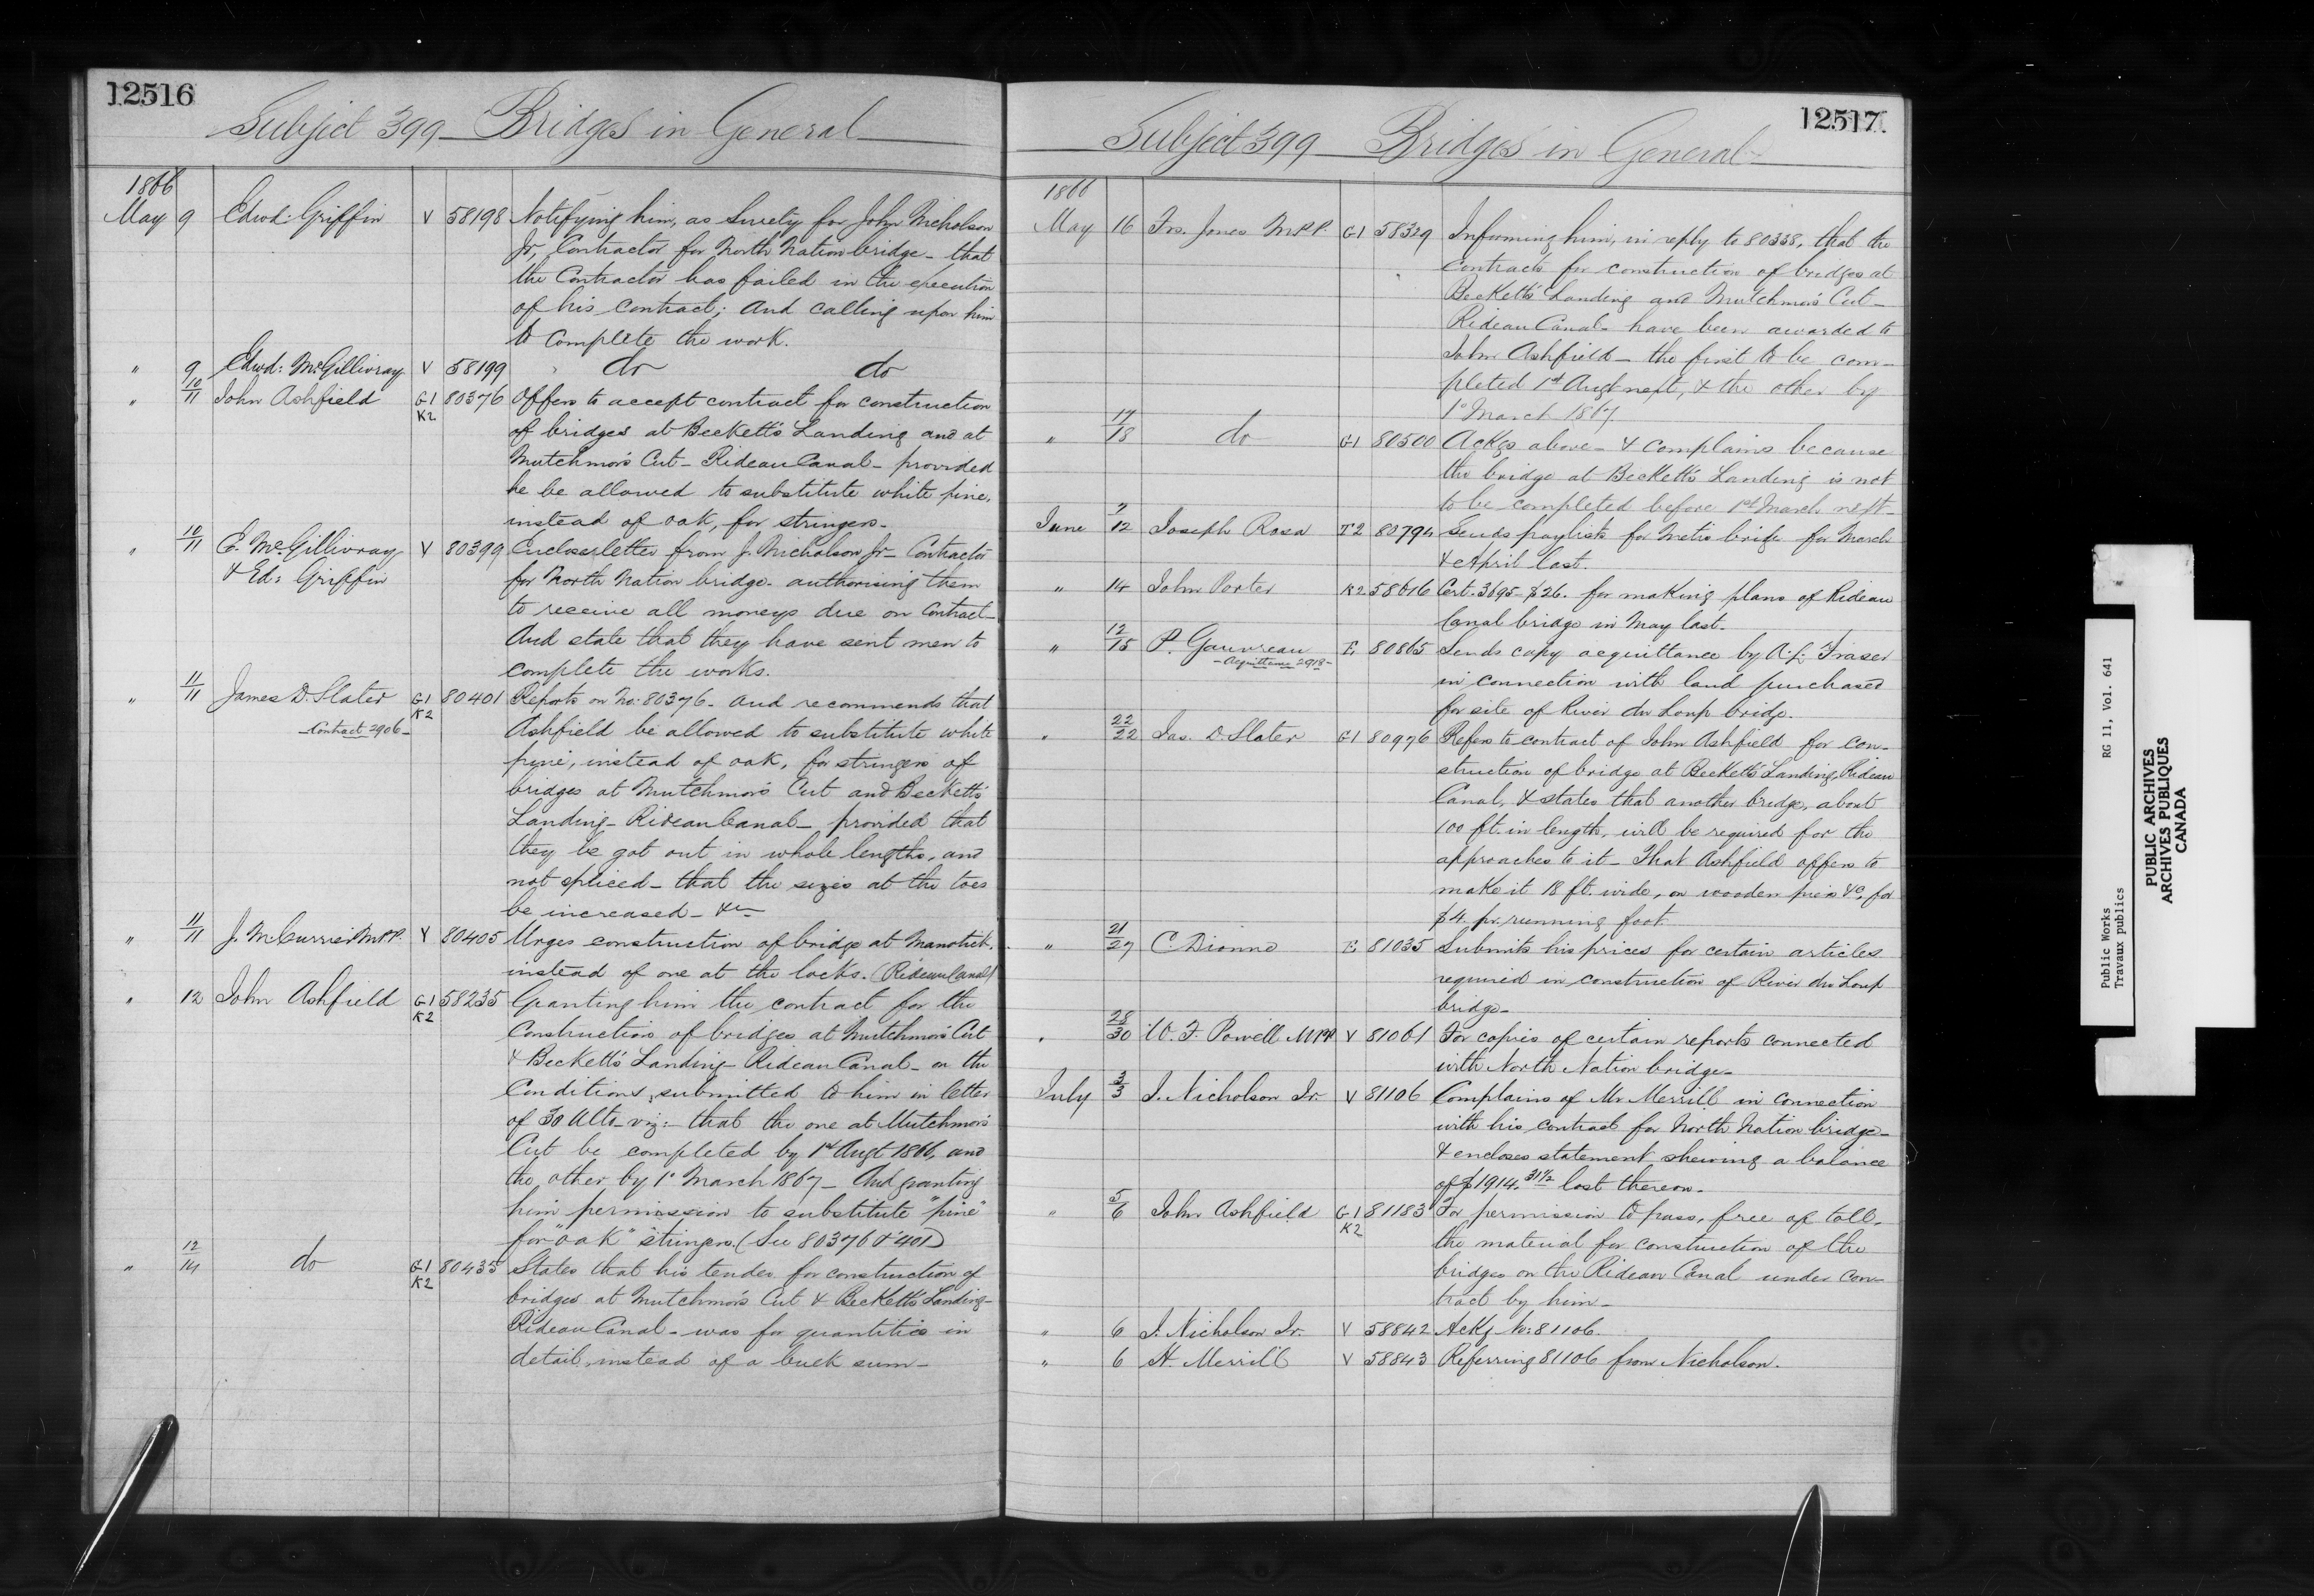 12516
Subject 399 — Bridges in General
1866
May 9 Edwd: Griffin V 58198 Notifying him, as Surety for John Nicholson
Jr, Contractor for North Nation bridge - that
the Contractor has failed in the execution
of his contract; And calling upon him
to complete the work.
" 9 Edwd: McGillivray V 58199 do do
" 10/11 John Ashfield G1 K2 80376 Offers to accept contract for construction
of bridges at Beckett's Landing and at
Mutchmor's Cut - Rideau Canal - provided
he be allowed to substitute white pine,
instead of oak, for stringers -
" 10/11 E. McGillivray V 80399 Encloses letter from J. Nicholson Jr - Contractor
& Ed: Griffin for North Nation bridge - authorising them
to receive all moneys due on Contract -
And state that they have sent men to
complete the works.
" 11/11 James D. Slater G1 K2 80401 Reports on No: 80376 - and recommends that
- Contract 2906 - Ashfield be allowed to substitute white
pine, instead of oak, for stringers of
bridges at Mutchmor's Cut and Beckett's
Landing - Rideau Canal - provided that
they be got out in whole lengths, and
not spliced - that the sizes at the toes
be increased - &c
" 11/11 J. M. Currier M.P.P. V 80405 Urges construction of bridge at Manotick,
instead of one at the locks. (Rideau Canal)
" 12 John Ashfield G1 K2 58235 Granting him the contract for the
Construction of bridges at Mutchmor's Cut
& Beckett's Landing - Rideau Canal - on the
Conditions submitted to him in letter
of 30 Ulto - viz: - that the one at Mutchmor's
Cut be completed by 1st Augt 1866, and
the other by 1° March 1867 - And granting
him permission to substitute "pine"
for "oak" stringers. (See 80376 & 401)
" 12/14 do G1 K2 80435 States that his tender for construction of
bridges at Mutchmor's Cut & Beckett's Landing -
Rideau Canal - was for quantities in
detail, instead of a bulk sum -
12517.
Subject 399 — Bridges in General
1866
May 16 Frs. Jones M.P.P. G1 58329 Informing him, in reply to 80338, that the
contracts for construction of bridges at
Beckett's Landing and Mutchmor's Cut -
Rideau Canal - have been awarded to
John Ashfield - the first to be com-
pleted 1st Augt next, & the other by
1° March 1867.
" 17/18 do G1 80500 Ackgs above - & complains because
the bridge at Beckett's Landing is not
to be completed before 1st March next -
June 7/12 Joseph Rosa T2 80794 Sends paylists for Metis bridge for March
& April last.
" 14 John Porter K2 58616 Cert. 3695 - $26. for making plans of Rideau
Canal bridge in May last -
" 12/15 P. Gauvreau E 80865 Sends copy acquittance by A. f. Fraser
- Acquittance 2918 - in connection with land purchased
for site of River du Loup bridge.
" 22/22 Jas. D. Slater G1 80976 Refers to contract of John Ashfield for con-
struction of bridge at Beckett's Landing, Rideau
Canal, & states that another bridge, about
100 ft. in length, will be required for the
approaches to it - That Ashfield offers to
make it 18 ft. wide, on wooden piers &c, for
$4. pr. running foot.
" 21/27 C Dionne E 81035 Submits his prices for certain articles
required in construction of River du Loup
bridge -
" 28/30 W. F. Powell MPP V 81061 For copies of certain reports connected
with North Nation bridge -
July 3/3 J. Nicholson Jr. V 81106 Complains of Mr Merrill in connection
with his contract for North Nation bridge -
& encloses statement shewing a balance
of $1914. 31½ lost thereon.
" 5/6 John Ashfield G1 K2 81183 For permission to pass, free of toll,
the material for construction of the
bridges on the Rideau Canal under con-
tract by him -
" 6 J. Nicholson Jr. V 58842 Ackg No: 81106.
" 6 H. Merrill V 58843 Referring 81106 from Nicholson.
Public Works RG 11, Vol. 641
Travaux publics
PUBLIC ARCHIVES
ARCHIVES PUBLIQUES
CANADA